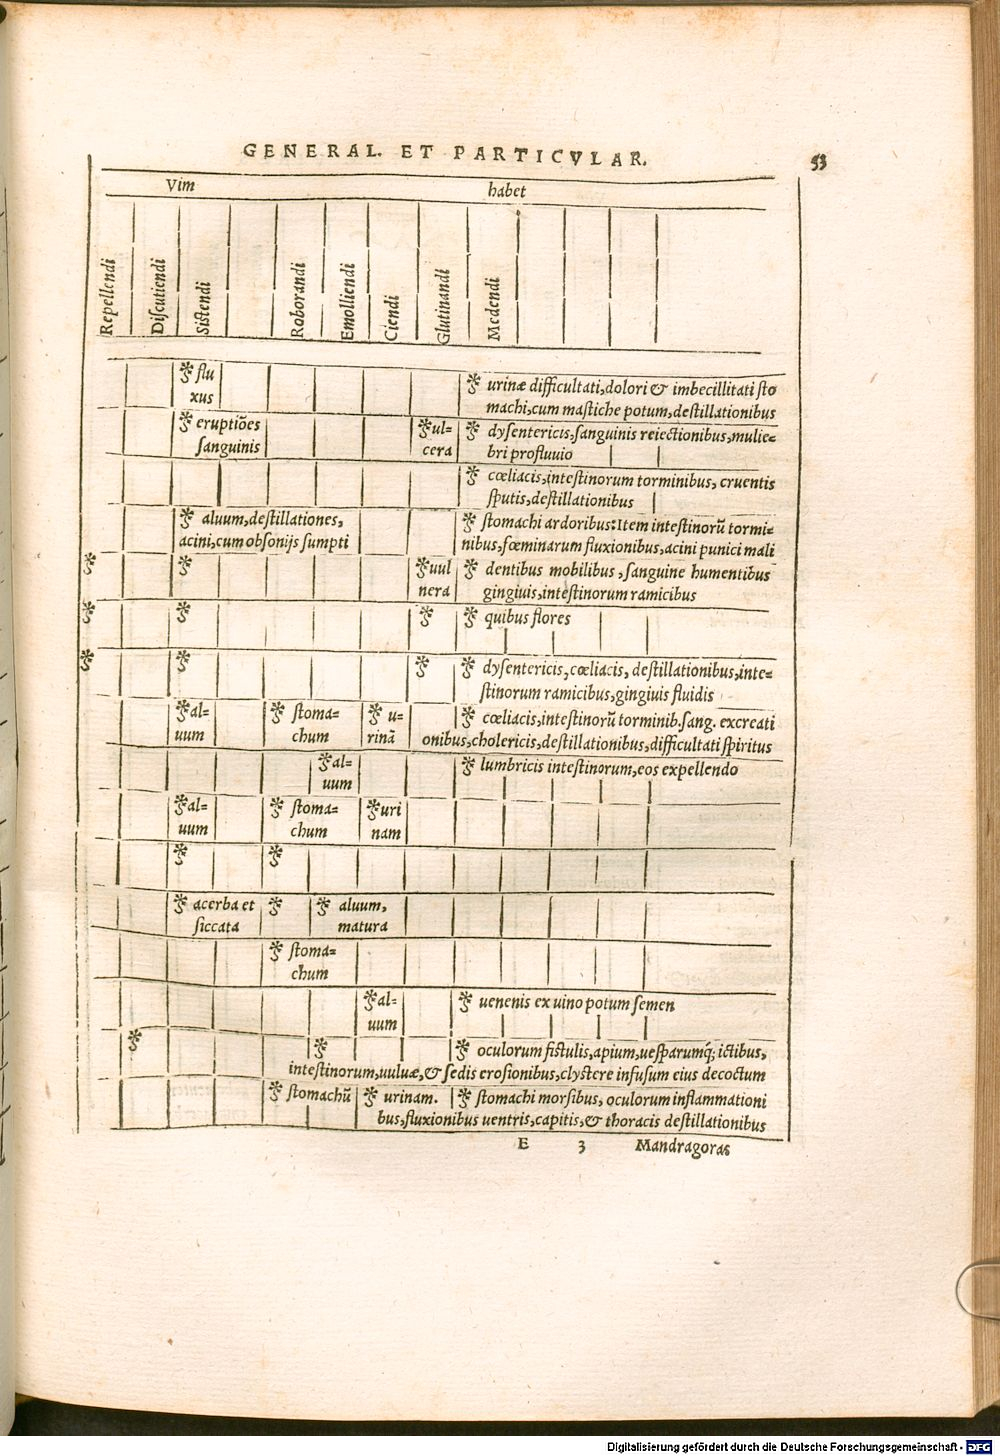 GENERAL. ET PARTICVLAR. 53
Vim habet
Repellendi Diſcutiendi Siſtendi Roborandi Emolliendi Ciendi Glutinandi Medendi
flu urinæ difficultati,dolori & imbecillitati ſto
xus machi,cum maſtiche potum,deſtillationibus
eruptiões ul= dyſentericis,ſanguinis reiectionibus,mulie=
ſanguinis cera bri profluuio
cœliacis,inteſtinorum torminibus, cruentis
ſputis,deſtillationibus
aluum,deſtillationes, ſtomachi ardoribus:Item inteſtinorũ tormi=
acini,cum obſonijs ſumpti nibus,fœminarum fluxionibus,acini punici mali
uul dentibus mobilibus ,ſanguine humentibus
nera gingiuis,inteſtinorum ramicibus
quibus flores
dyſentericis, cœliacis, deſtillationibus,inte=
ſtinorum ramicibus,gingiuis fluidis
al= ſtoma= u= cœliacis,inteſtinorũ torminib.ſang. excreati
uum chum rinã onibus,cholericis,deſtillationibus,difficultati ſpiritus
al= lumbricis inteſtinorum,eos expellendo
uum
al= ſtoma= uri
uum chum nam
acerba et aluum,
ſiccata matura
ſtoma=
chum
al= uenenis ex uino potum ſemen
uum
oculorum fiſtulis,apium,ueſparumq́; ictibus,
inteſtinorum,uuluæ,& ſedis eroſionibus,clyſtere infuſum eius decoctum
ſtomachũ urinam. ſtomachi morſibus, oculorum inflammationi
bus,fluxionibus uentris,capitis,& thoracis deſtillationibus
E 3 Mandragoras
Digitalisierung gefördert durch die Deutsche Forschungsgemeinschaft - DFG